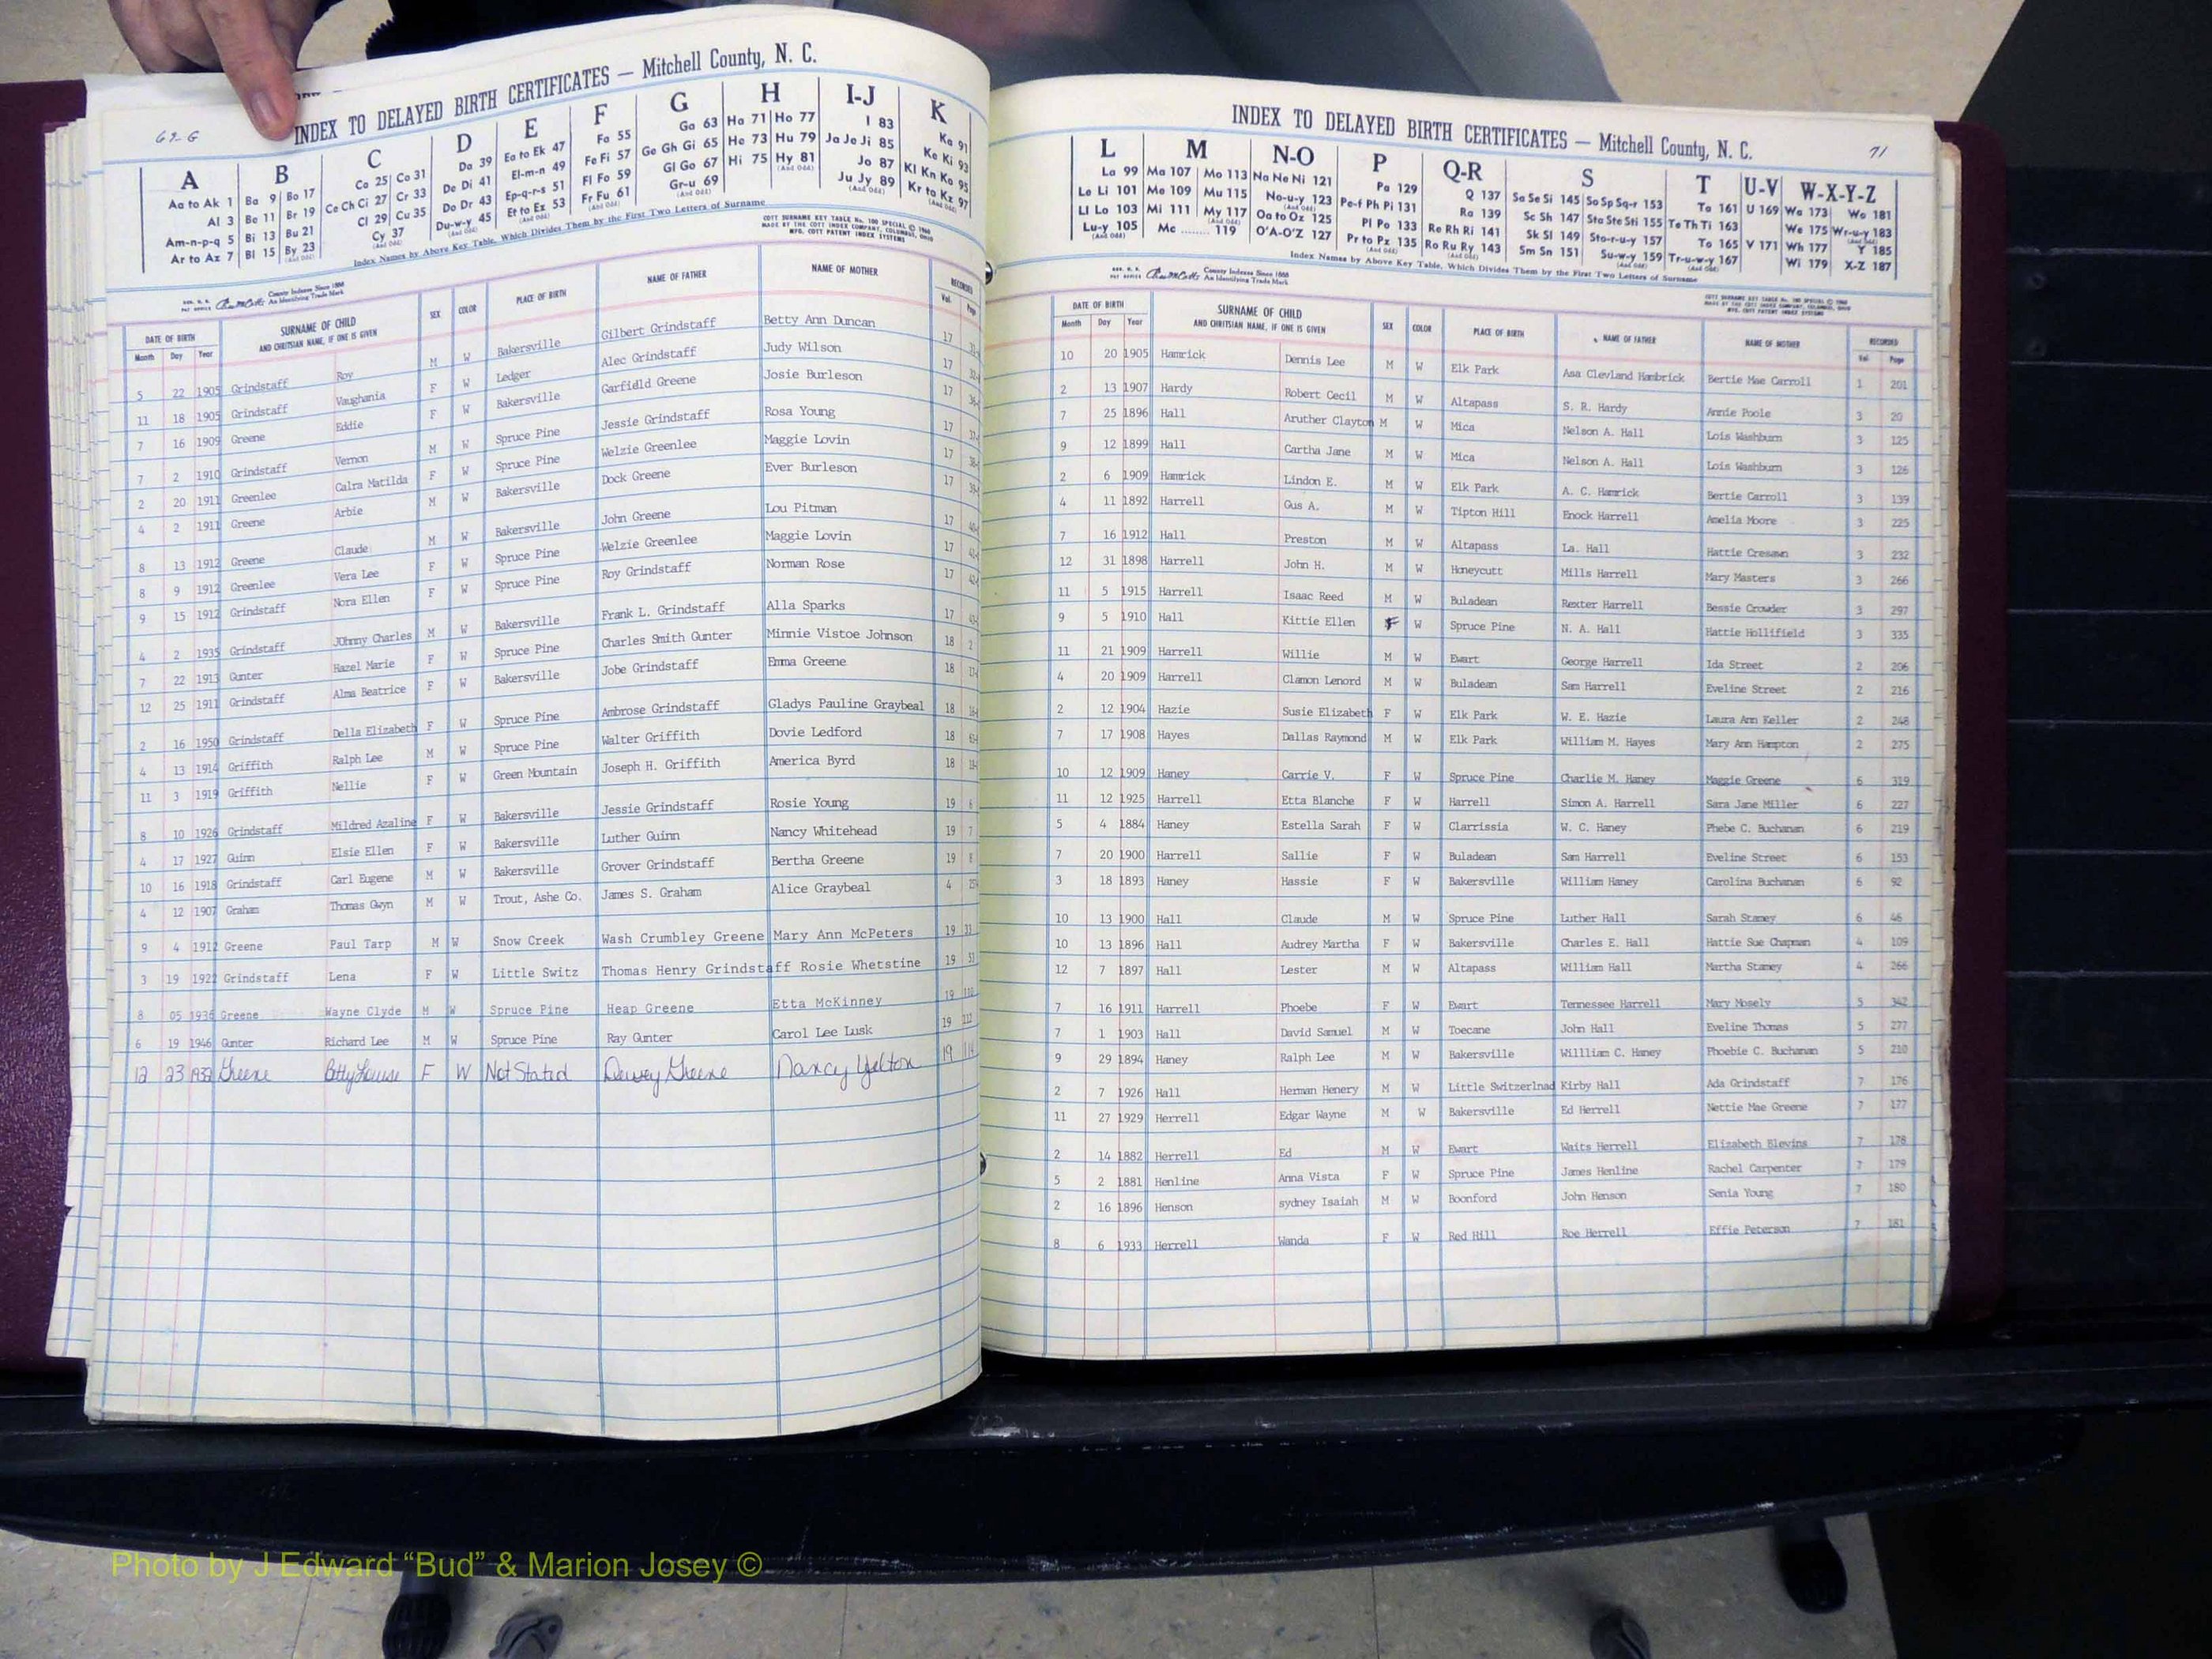 INDEX TO DELAYED BIRTH CERTIFICATES — Mitchell County, N. C.
69-G
A B C D E F G H I-J K
Aa to Ak 1 Ba 9 Bo 17 Ca 25 Co 31 Da 39 Ea to Ek 47 Fa 55 Ga 63 Ha 71 Ho 77 I 83 Ka 91
Al 3 Be 11 Br 19 Ce Ch Ci 27 Cr 33 De Di 41 El-m-n 49 Fe Fi 57 Ge Gh Gi 65 He 73 Hu 79 Ja Je Ji 85 Ke Ki 93
Am-n-p-q 5 Bi 13 Bu 21 Cl 29 Cu 35 Do Dr 43 Ep-q-r-s 51 Fl Fo 59 Gl Go 67 Hi 75 Hy 81 Jo 87 Kl Kn Ko 95
Ar to Az 7 Bl 15 By 23 Cy 37 Du-w-y 45 Et to Ez 53 Fr Fu 61 Gr-u 69 Ju Jy 89 Kr to Kz 97
Index Names by Above Key Table, Which Divides Them by the First Two Letters of Surname
DATE OF BIRTH SURNAME OF CHILD SEX COLOR PLACE OF BIRTH NAME OF FATHER NAME OF MOTHER RECORDED
Month Day Year AND CHRITSIAN NAME, IF ONE IS GIVEN Vol. Page
5 22 1905 Grindstaff Roy M W Bakersville Gilbert Grindstaff Betty Ann Duncan 17
11 18 1905 Grindstaff Vaughania F W Ledger Alec Grindstaff Judy Wilson 17
7 16 1909 Greene Eddie F W Bakersville Garfield Greene Josie Burleson 17
7 2 1910 Grindstaff Vernon M W Spruce Pine Jessie Grindstaff Rosa Young 17
2 20 1911 Greenlee Calra Matilda F W Spruce Pine Welzie Greenlee Maggie Lovin 17
4 2 1911 Greene Arbie M W Bakersville Dock Greene Ever Burleson 17
8 13 1912 Greene Claude M W Bakersville John Greene Lou Pitman 17
8 9 1912 Greenlee Vera Lee F W Spruce Pine Welzie Greenlee Maggie Lovin 17
9 15 1912 Grindstaff Nora Ellen F W Spruce Pine Roy Grindstaff Norman Rose 17
4 2 1935 Grindstaff JOhnny Charles M W Bakersville Frank L. Grindstaff Alla Sparks 17
7 22 1913 Gunter Hazel Marie F W Spruce Pine Charles Smith Gunter Minnie Vistoe Johnson 18 2
12 25 1911 Grindstaff Alma Beatrice F W Bakersville Jobe Grindstaff Emma Greene 18
2 16 1950 Grindstaff Della Elizabeth F W Spruce Pine Ambrose Grindstaff Gladys Pauline Graybeal 18
4 13 1914 Griffith Ralph Lee M W Spruce Pine Walter Griffith Dovie Ledford 18
11 3 1919 Griffith Nellie F W Green Mountain Joseph H. Griffith America Byrd 18
8 10 1926 Grindstaff Mildred Azaline F W Bakersville Jessie Grindstaff Rosie Young 19 6
4 17 1927 Guinn Elsie Ellen F W Bakersville Luther Guinn Nancy Whitehead 19 7
10 16 1918 Grindstaff Carl Eugene M W Bakersville Grover Grindstaff Bertha Greene 19 8
4 12 1907 Graham Thomas Gwyn M W Trout, Ashe Co. James S. Graham Alice Graybeal 4
9 4 1912 Greene Paul Tarp M W Snow Creek Wash Crumbley Greene Mary Ann McPeters 19 33
3 19 1922 Grindstaff Lena F W Little Switz Thomas Henry Grindstaff Rosie Whetstine 19 51
8 05 1936 Greene Wayne Clyde M W Spruce Pine Heap Greene Etta McKinney 19 110
6 19 1946 Gunter Richard Lee M W Spruce Pine Ray Gunter Carol Lee Lusk 19 112
12 23 1932 Greene Betty Louise F W Not Stated Dewey Greene Nancy Yelton 19 114
INDEX TO DELAYED BIRTH CERTIFICATES — Mitchell County, N. C.
71
L M N-O P Q-R S T U-V W-X-Y-Z
La 99 Ma 107 Mo 113 Na Ne Ni 121 Pa 129 Q 137 Sa Se Si 145 So Sp Sq-r 153 Ta 161 U 169 Wa 173 Wo 181
Le Li 101 Me 109 Mu 115 No-u-y 123 Pe-f Ph Pi 131 Ra 139 Sc Sh 147 Sta Ste Sti 155 Te Th Ti 163 We 175 Wr-u-y 183
Ll Lo 103 Mi 111 My 117 Oa to Oz 125 Pl Po 133 Re Rh Ri 141 Sk Sl 149 Sto-r-u-y 157 To 165 V 171 Wh 177 Y 185
Lu-y 105 Mc ........ 119 O'A-O'Z 127 Pr to Pz 135 Ro Ru Ry 143 Sm Sn 151 Su-w-y 159 Tr-u-w-y 167 Wi 179 X-Z 187
Index Names by Above Key Table, Which Divides Them by the First Two Letters of Surname
DATE OF BIRTH SURNAME OF CHILD SEX COLOR PLACE OF BIRTH NAME OF FATHER NAME OF MOTHER RECORDED
Month Day Year AND CHRITSIAN NAME, IF ONE IS GIVEN Vol. Page
10 20 1905 Hamrick Dennis Lee M W Elk Park Asa Clevland Hambrick Bertie Mae Carroll 1 201
2 13 1907 Hardy Robert Cecil M W Altapass S. R. Hardy Annie Poole 3 20
7 25 1896 Hall Aruther Clayton M W Mica Nelson A. Hall Lois Washburn 3 125
9 12 1899 Hall Cartha Jane M W Mica Nelson A. Hall Lois Washburn 3 126
2 6 1909 Hamrick Lindon E. M W Elk Park A. C. Hamrick Bertie Carroll 3 139
4 11 1892 Harrell Gus A. M W Tipton Hill Enock Harrell Amelia Moore 3 225
7 16 1912 Hall Preston M W Altapass La. Hall Hattie 3 232
12 31 1898 Harrell John H. M W Honeycutt Mills Harrell Mary Masters 3 266
11 5 1915 Harrell Isaac Reed M W Buladean Rexter Harrell Bessie Crowder 3 297
9 5 1910 Hall Kittie Ellen F W Spruce Pine N. A. Hall Hattie Hollifield 3 335
11 21 1909 Harrell Willie M W Ewart George Harrell Ida Street 2 206
4 20 1909 Harrell Clamon Lenord M W Buladean Sam Harrell Eveline Street 2 216
2 12 1904 Hazie Susie Elizabeth F W Elk Park W. E. Hazie Laura Ann Keller 2 248
7 17 1908 Hayes Dallas Raymond M W Elk Park William M. Hayes Mary Ann Hampton 2 275
10 12 1909 Haney Carrie V. F W Spruce Pine Charlie M. Haney Maggie Greene 6 319
11 12 1925 Harrell Etta Blanche F W Harrell Simon A. Harrell Sara Jane Miller 6 227
5 4 1884 Haney Estella Sarah F W Clarrissia W. C. Haney Phebe C. Buchanan 6 219
7 20 1900 Harrell Sallie F W Buladean Sam Harrell Eveline Street 6 153
3 18 1893 Haney Hassie F W Bakersville William Haney Carolina Buchanan 6 92
10 13 1900 Hall Claude M W Spruce Pine Luther Hall Sarah Stamey 6 46
10 13 1896 Hall Audrey Martha F W Bakersville Charles E. Hall Hattie Sue Chapman 4 109
12 7 1897 Hall Lester M W Altapass William Hall Martha Stamey 4 266
7 16 1911 Harrell Phoebe F W Ewart Tennessee Harrell Mary Mosely 5 342
7 1 1903 Hall David Samuel M W Toecane John Hall Eveline Thomas 5 277
9 29 1894 Haney Ralph Lee M W Bakersville Willliam C. Haney Phoebie C. Buchanan 5 210
2 7 1926 Hall Herman Henery M W Little Switzerlnad Kirby Hall Ada Grindstaff 7 176
11 27 1929 Herrell Edgar Wayne M W Bakersville Ed Herrell Nettie Mae Greene 7 177
2 14 1882 Herrell Ed M W Ewart Waits Herrell Elizabeth Blevins 7 178
5 2 1881 Henline Anna Vista F W Spruce Pine James Henline Rachel Carpenter 7 179
2 16 1896 Henson sydney Isaiah M W Boonford John Henson Senia Young 7 180
8 6 1933 Herrell Wanda F W Red Hill Roe Herrell Effie Peterson 7 181
Photo by J Edward “Bud” & Marion Josey ©